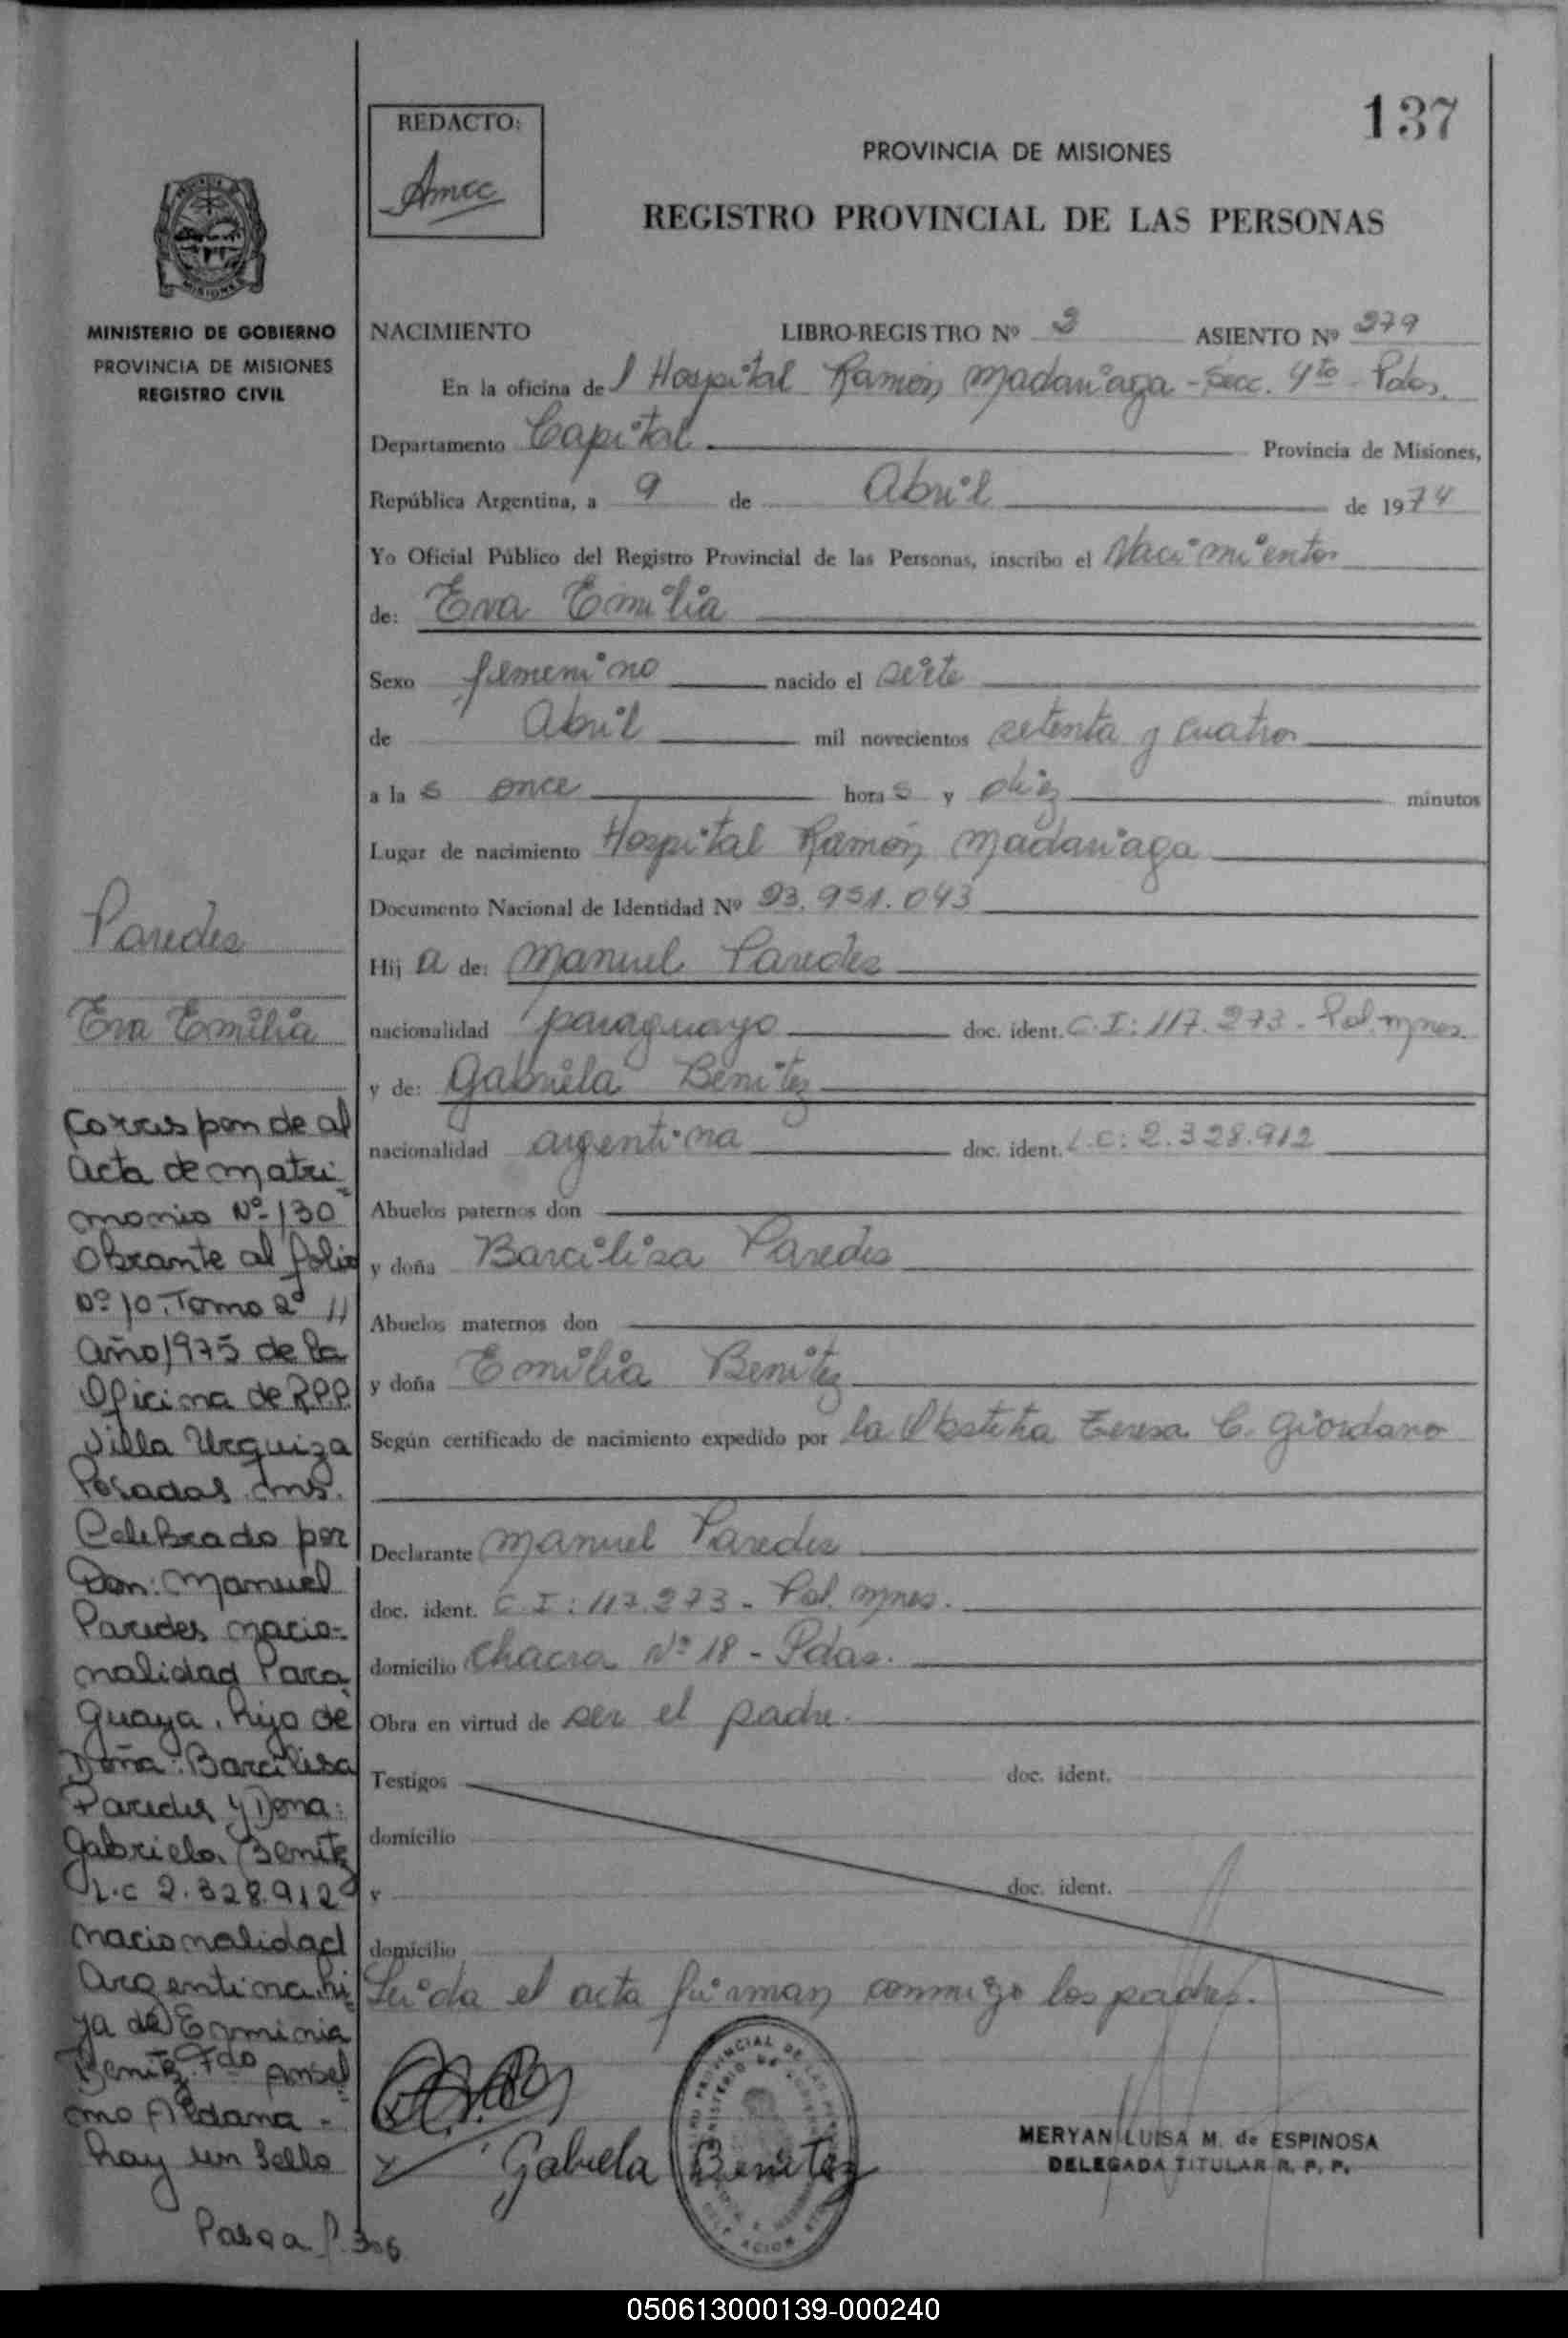 137
REDACTO:
Amcc
PROVINCIA DE MISIONES
REGISTRO PROVINCIAL DE LAS PERSONAS
MISIONES
MINISTERIO DE GOBIERNO
PROVINCIA DE MISIONES
REGISTRO CIVIL
NACIMIENTO LIBRO-REGISTRO Nº 2 ASIENTO Nº 279
En la oficina de l Hospital Ramón Madariaga - Secc. 4to - Pdas.
Departamento Capital Provincia de Misiones,
República Argentina, a 9 de Abril de 1974
Yo Oficial Público del Registro Provincial de las Personas, inscribo el Nacimiento
de: Eva Emilia
Sexo femenino nacido el siete
de Abril mil novecientos setenta y cuatro
a la s once hora s y diez minutos
Lugar de nacimiento Hospital Ramón Madariaga
Documento Nacional de Identidad Nº 23.951.043
Hij a de: Manuel Paredes
nacionalidad paraguayo doc. ident. C.I: 117.273 - Pol. mnes.
y de: Gabriela Benitez
nacionalidad argentina doc. ident. L.C: 2.328.912
Abuelos paternos don
y doña Barcilisa Paredes
Abuelos maternos don
y doña Emilia Benitez
Según certificado de nacimiento expedido por la Obstetra Teresa C. Giordano
Declarante Manuel Paredes
doc. ident. C.I: 117.273 - Pol. mnes.
domicilio Chacra Nº 18 - Pdas.
Obra en virtud de ser el padre.
Testigos doc. ident.
domicilio
y doc. ident.
domicilio
Leida el acta firman conmigo los padres.
Gabriela Benitez
MERYAN LUISA M. de ESPINOSA
DELEGADA TITULAR R. P. P.
Paredes
Eva Emilia
Corresponde al
acta de matri=
monio Nº 130
Obrante al folio
Nº 10. Tomo 2º 11
año 1975 de la
Oficina de R.P.P.
Villa Urquiza
Posadas mns.
Celebrado por
Don: Manuel
Paredes nacio=
nalidad Para
guaya, hijo de
Doña: Barcilisa
Paredes y Dona:
Gabriela Benitez
L.c 2.328.912
nacionalidad
Argentina hi=
ja de Erminia
Benitez. Fdo Ansel=
mo Aldana -
hay un sello
Pasa a f. 306
050613000139-000240